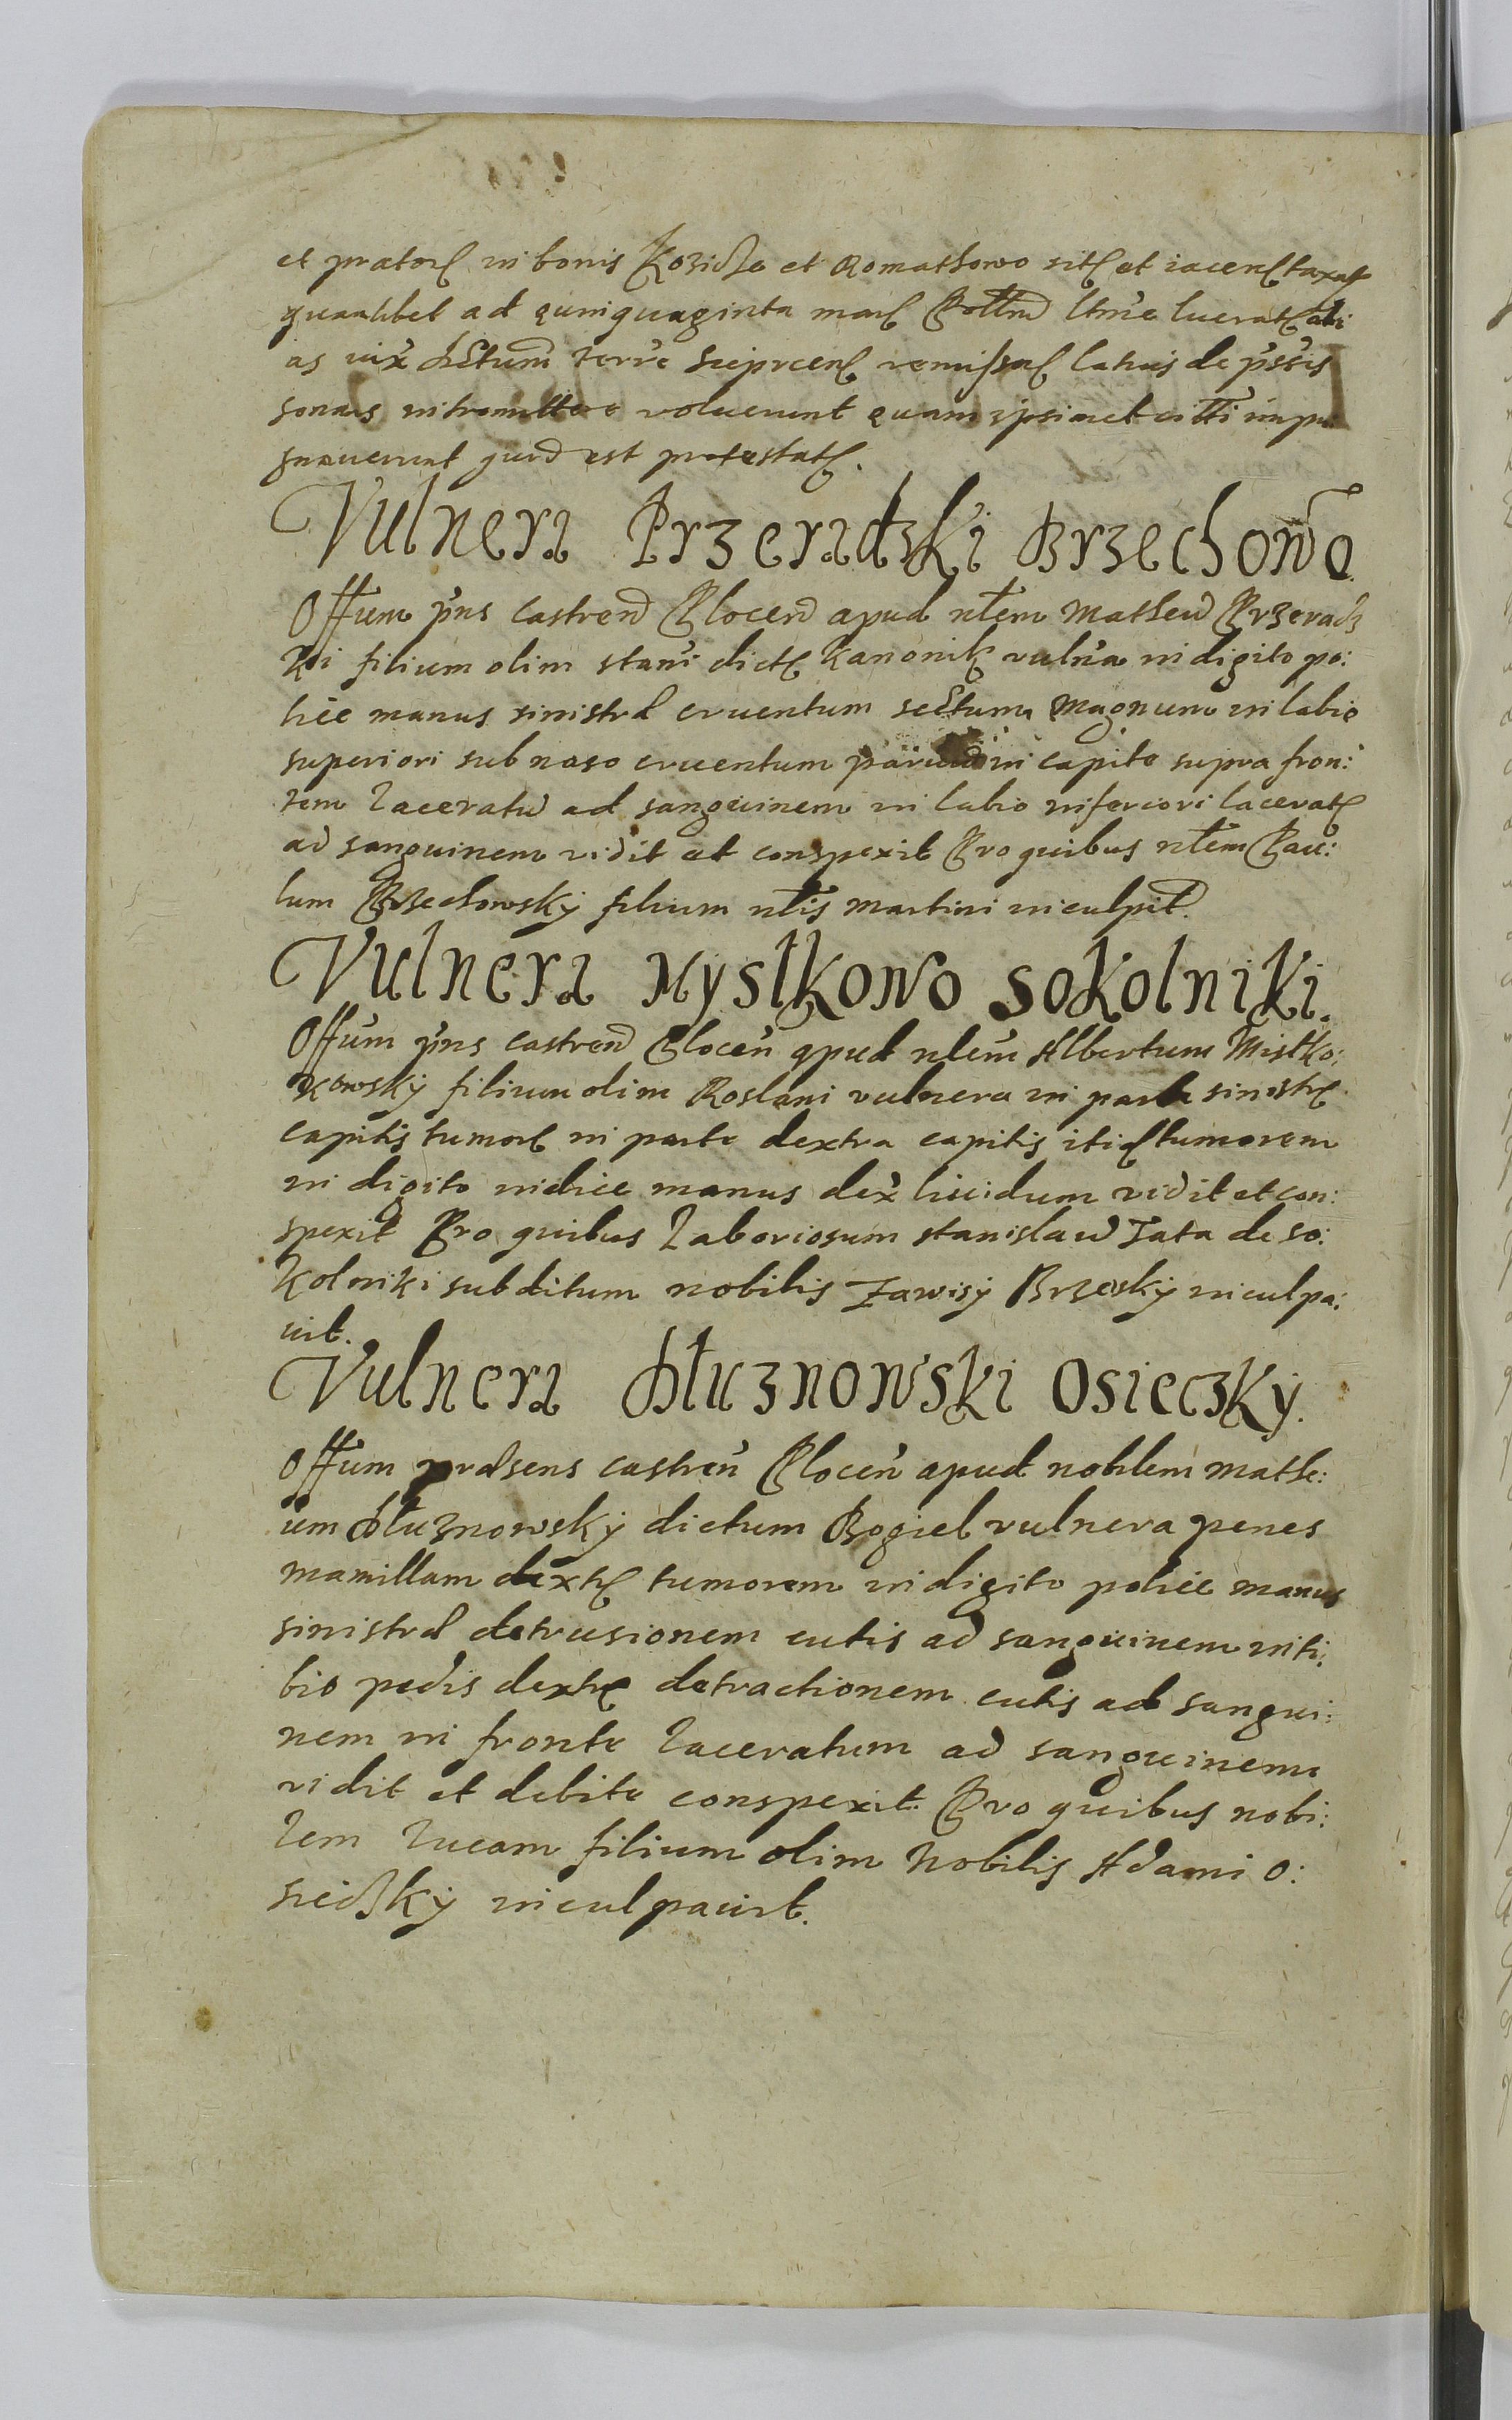 et prator in bonis Kozidła et Romathowo sit et iacen taxat
quamlibet ad quinquaginta mar
as iux terre remissa latius de
sonaes intromittere voluerunt quam ipsimet
gnauerunt quod est protestat.
Vulnera Przeradzki Brzechowo.
Offum pns Castren Plocen apud nlem Matheu Przeradz
ki filium olim stani dict Kanonik vulna in digito po:
lice manus sinistra cruentum sectum magnum in labio
superiori sub naso cruentum paruu in capite supra fron:
tem laceratu ad sanguinem in labio inferiori lacerat
ad sanguinem vidit et conspexit Pro quibus nlem Pau:
lum Brzechowsky filium nlis Martini inculpit.
Vulnera Mystkowo Sokolniki.
Offum pns castren Plocen apud nlem Albertum Mistko:
kowsky filium olim Roslani vulnera in parte sinistr
capitis tumor in parte dextra capitis iti tumorem
in digito indice manus dex liuidum vidit et con:
spexit Pro quibus Laboriosum stanislau Jata de so:
kolniki subditum nobilis Zawisy Brzesky inculpa:
uit.
Vulnera Dłuznowski Osieczky.
Offum prasens castren Plocen apud nobilem Mathe:
um Dłuznowsky dictum Bogiel vulnera penes
mamillam dextr tumorem in digito police manus
sinistra detrusionem cutis ad sanguinem in ti:
bio pedis dextr detractionem cutis ad sangui:
nem in fronte laceratum ad sanguinem
vidit et debite conspexit. Pro quibus nobi:
lem Lucam filium olim Nobilis Adami O:
siedzky inculpauit.